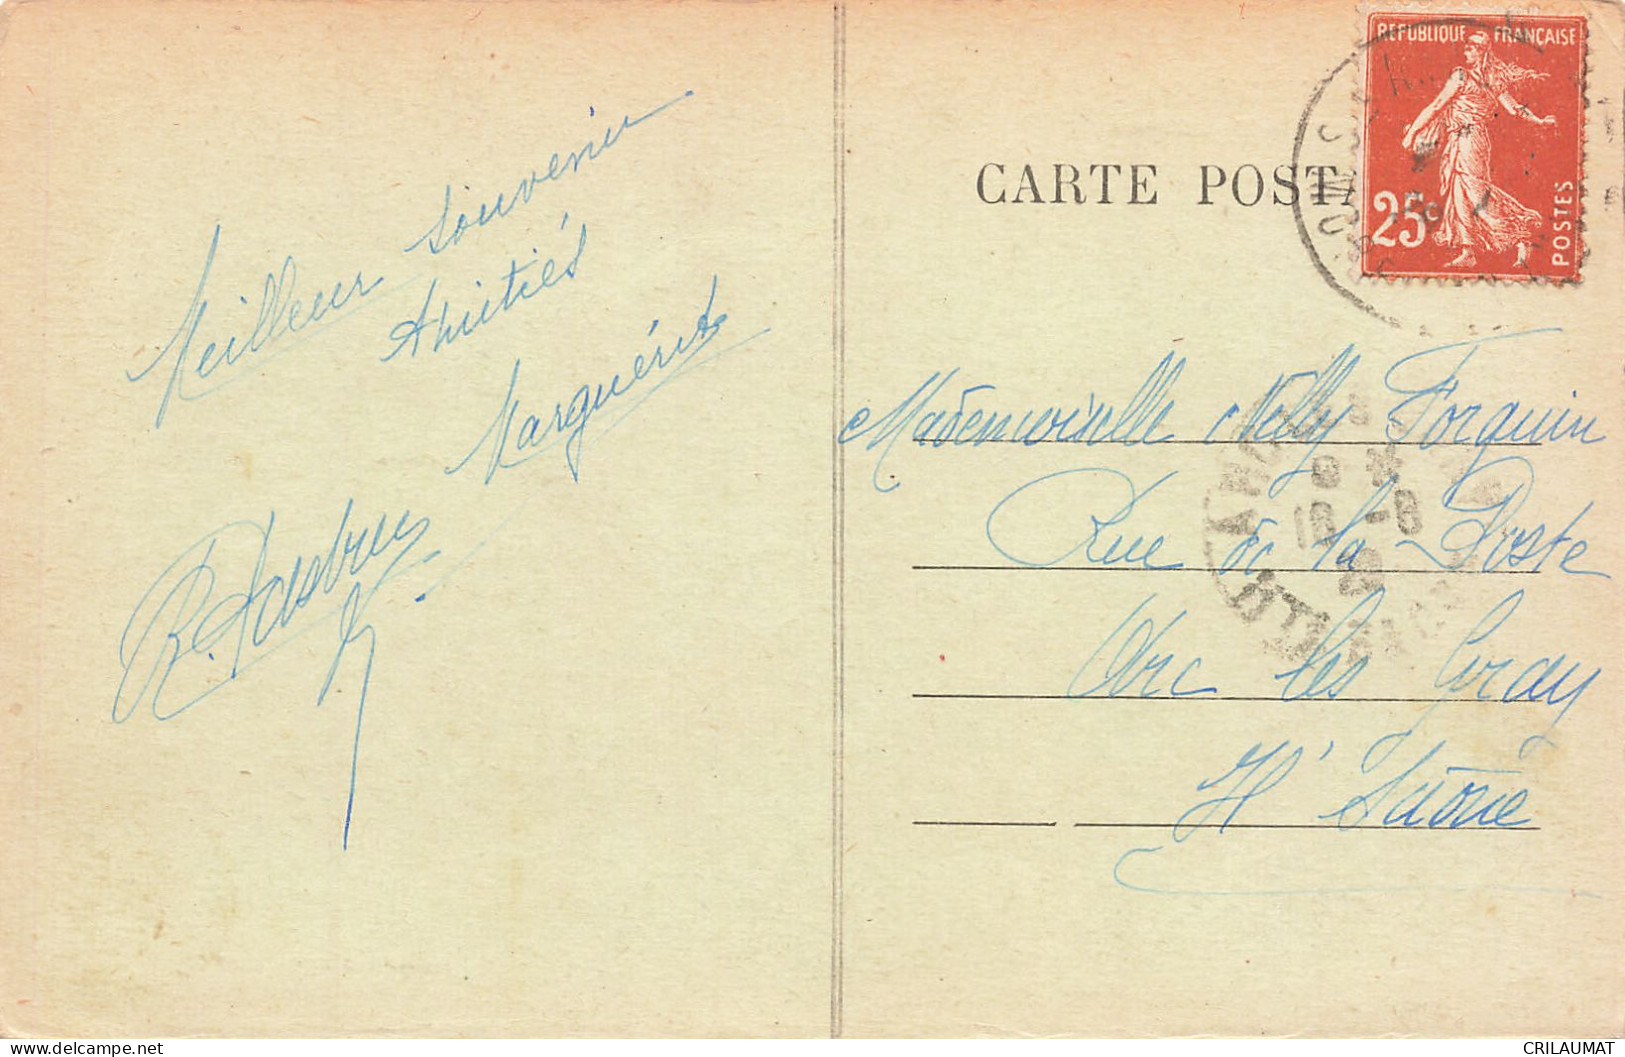 Meilleur souvenir
Amitiés
Marguérite
CARTE POSTA
REPUBLIQUE FRANÇAISE
25c
POSTES
Mademoiselle Nelly Forquin
Rue de la Poste
Arc les Gray
Hte Saône
CRILAUMAT